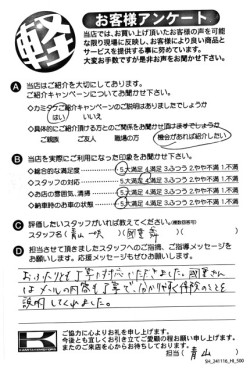 軽
お客様アンケート
当店では、お買い上げ頂いたお客様の声を可能
な限り現場に反映し、お客様により良い商品と
サービスを提供する事に努めています。
大変お手数ですが是非お声をお聞かせ下さい。
A 当店はご紹介を大切にしております。
ご紹介キャンペーンについてお聞かせ下さい。
◇カミタケご紹介キャンペーンのご説明はありましたでしょうか
はい いいえ
◇具体的にご紹介頂ける方とのご関係をお聞かせ頂けますでしょうか
ご親族 ご友人 職場の方 機会があれば紹介したい
B 当店を実際にご利用になった印象をお聞かせ下さい。
◇総合的な満足度 5.大満足 4.満足 3.ふつう 2.やや不満 1.不満
◇スタッフの対応 5.大満足 4.満足 3.ふつう 2.やや不満 1.不満
◇お店の雰囲気、清掃 5.大満足 4.満足 3.ふつう 2.やや不満 1.不満
◇納車時のお車の状態 5.大満足 4.満足 3.ふつう 2.やや不満 1.不満
C 評価したいスタッフがいれば教えてください。(複数回答可)
スタッフ名( 青山 )( )
D 担当させて頂きましたスタッフへのご指摘、ご指導メッセージを
お願いします。応援メッセージもぜひお願いします。
お二人とも丁寧な対応いただきました。
はメールの内容も丁寧で、
説明してくれました。
K
ご協力に心よりお礼を申し上げます。
今後とも宜しくお引き立てご愛顧の程お願い申し上げます。
またのご来店を心からお待ちしております。
担当( 青山 )
SH_241116_HI_500